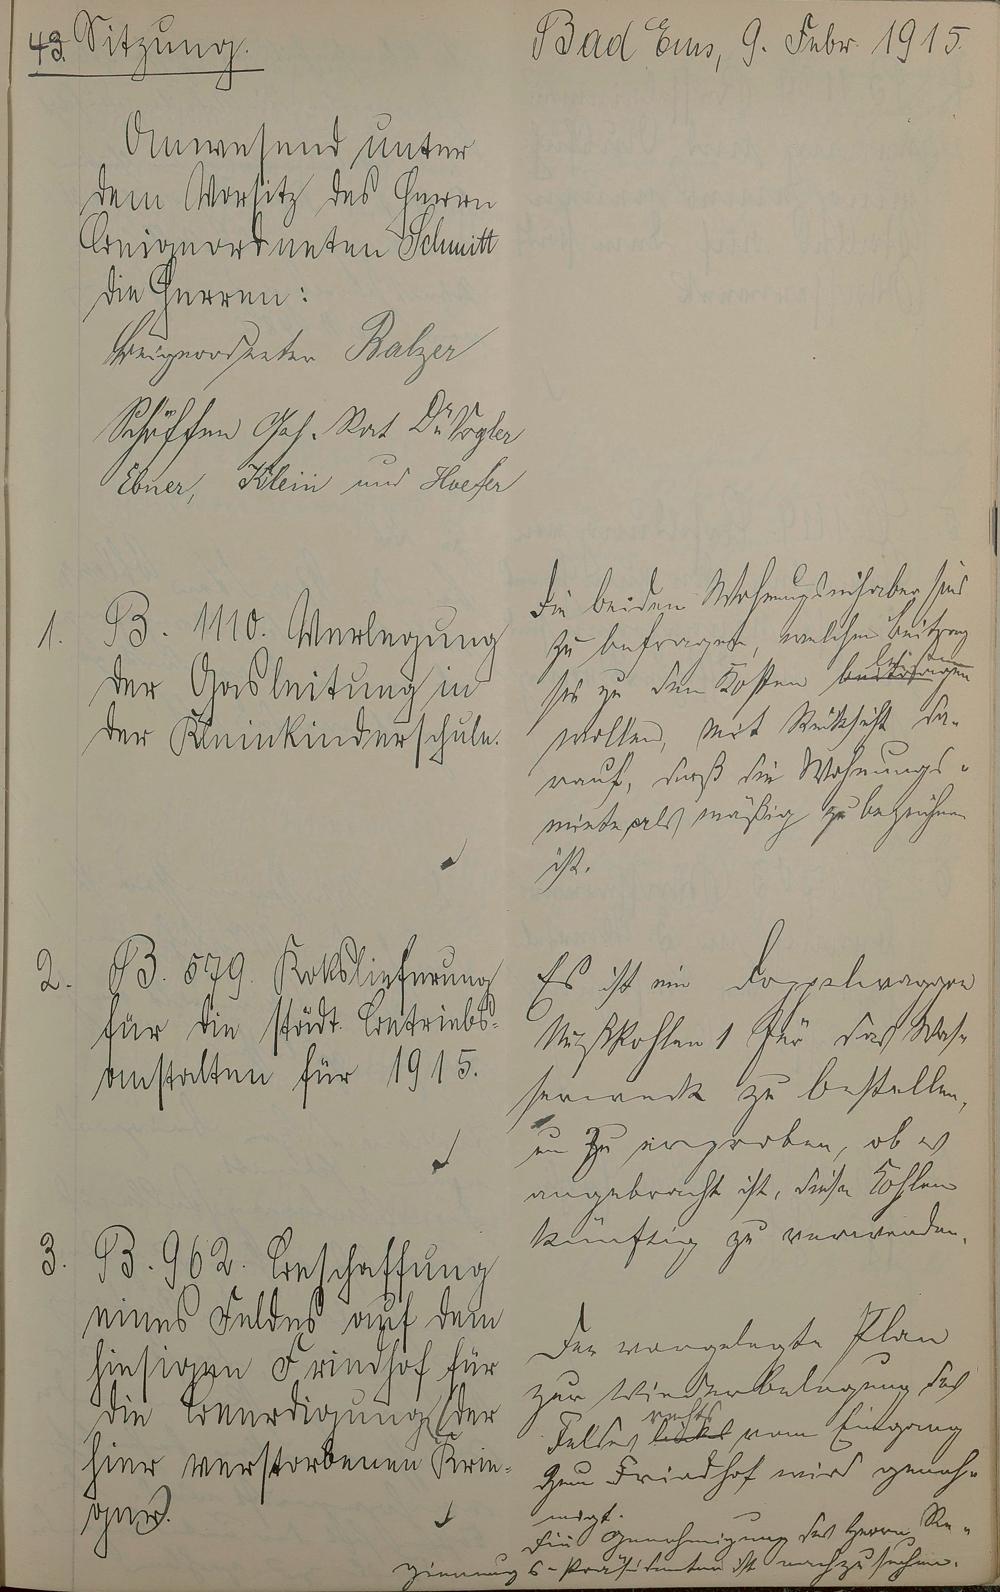 43. Sitzung.
Bad Ems, 9. Febr. 1915.
Anwesend unter
dem Vorsitz des Herrn
Beigeordneten Schmitt
die Herren:
Beigeordneter Balzer
Schöffen Geh. Rat Dr. Vogler
Ebner, Klein und Hoefer
1. B. 1110. Verlegung
der Gasleitung in
der Kleinkinderschule.
Die beiden Wohnungsinhaber sind
zu befragen, welchen Beitrag
sie zu den Kosten leisten
wollen, mit Rücksicht da-
rauf, daß die Wohnungs-
miete als mäßig zu bezeichnen
ist.
2. B. 579. Kokslieferung
für die städt. Betriebs-
anstalten für 1915.
Es ist ein Doppelwaggon
Nußkohlen 1 für das Was-
serwerk zu bestellen,
um zu erproben, ob es
angebracht ist, diese Kohlen
künftig zu verwenden.
3. B. 962. Beschaffung
eines Feldes auf dem
hiesigen Friedhof für
die Beerdigung (der
hier verstorbenen Krie-
ger).
Der vorgelegte Plan
zur Wiederbelegung des
Feldes links rechts vom Eingang
zum Friedhof wird geneh-
migt.
Die Genehmigung des Herrn Re-
gierungs-Präsidenten ist nachzusuchen.